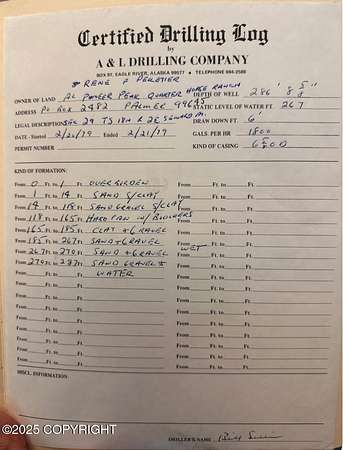 Certified Drilling Log
by
A & L DRILLING COMPANY
BOX 97, EAGLE RIVER, ALASKA 99577 • TELEPHONE 694-2588
RENE A PELLETIER
OWNER OF LAND AL PIONEER PEAK QUARTER HORSE RANCH DEPTH OF WELL 286 8 5"
ADDRESS PO BOX 2482 PALMER 99645 STATIC LEVEL OF WATER FT. 267
LEGAL DESCRIPTION SEC 29 T5 18N R 2E SEWARD M. DRAW DOWN FT. 6'
DATE - Started 2/20/79 Ended 2/21/79 GALS. PER HR 1800
PERMIT NUMBER KIND OF CASING
KIND OF FORMATION:
From 0 Ft. to 1 Ft. OVERBURDEN From Ft. to Ft.
From 1 Ft. to 14 Ft. SAND & CLAY From Ft. to Ft.
From 14 Ft. to 118 Ft. SAND GRAVEL & CLAY From Ft. to Ft.
From 118 Ft. to 165 Ft. HARD PAN W/ BOULDERS From Ft. to Ft.
From 165 Ft. to 185 Ft. CLAY & GRAVEL From Ft. to Ft.
From 185 Ft. to 267 Ft. SAND & GRAVEL From Ft. to Ft.
From 267 Ft. to 270 Ft. SAND & GRAVEL WET From Ft. to Ft.
From 270 Ft. to 287 Ft. SAND GRAVEL & From Ft. to Ft.
From Ft. to Ft. WATER From Ft. to Ft.
From Ft. to Ft. From Ft. to Ft.
From Ft. to Ft. From Ft. to Ft.
From Ft. to Ft. From Ft. to Ft.
From Ft. to Ft. From Ft. to Ft.
From Ft. to Ft. From Ft. to Ft.
From Ft. to Ft. From Ft. to Ft.
From Ft. to Ft. From Ft. to Ft.
From Ft. to Ft. From Ft. to Ft.
MISCL. INFORMATION:
DRILLER'S NAME
©2025 COPYRIGHT